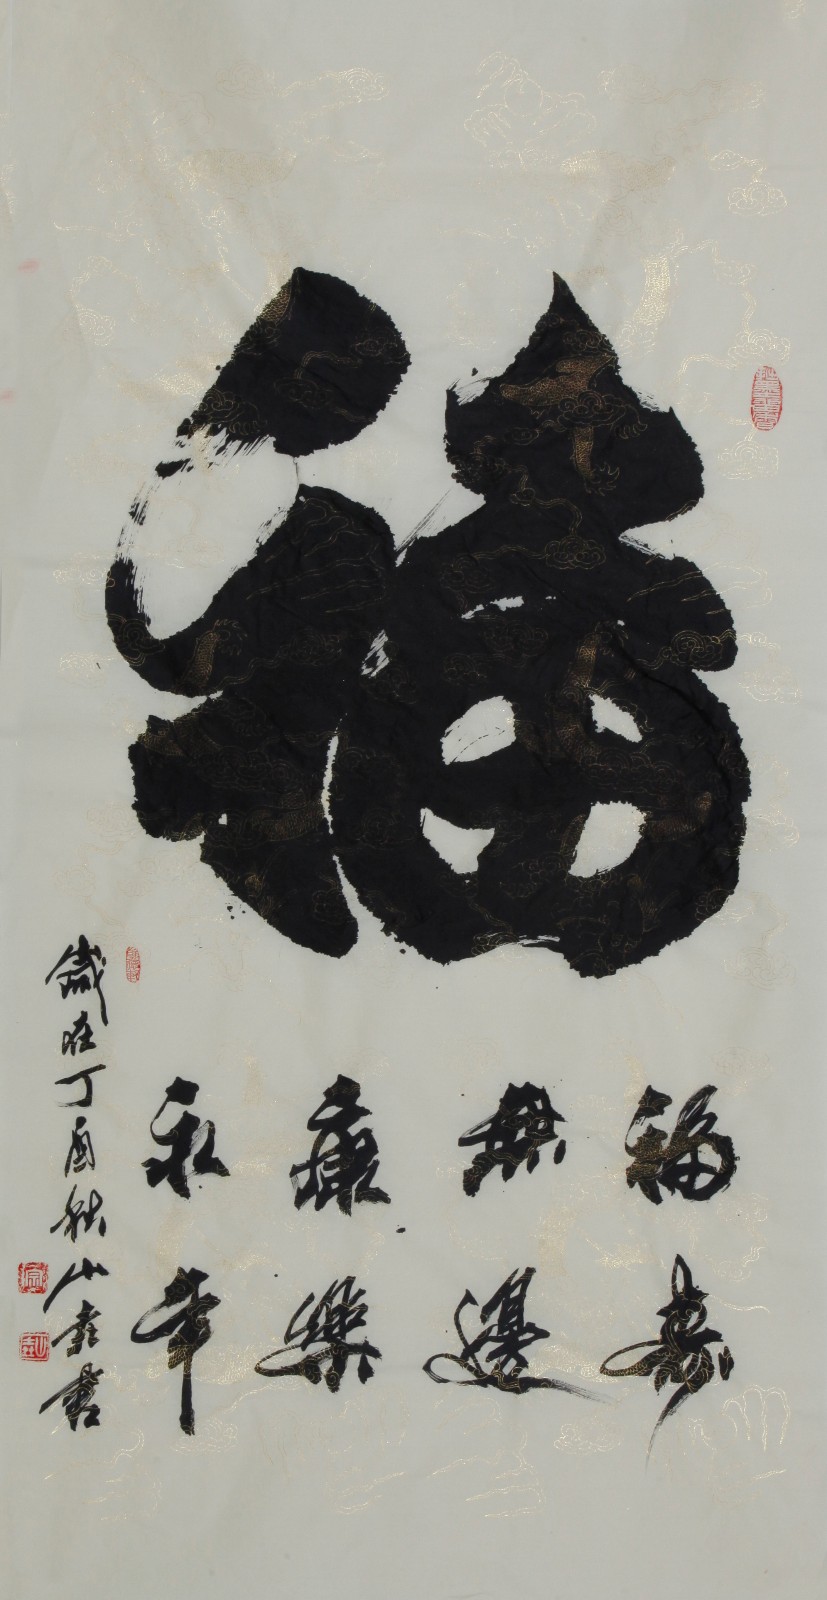 福
福壽
無邊
康樂
永年
歲在丁酉秋山壵書